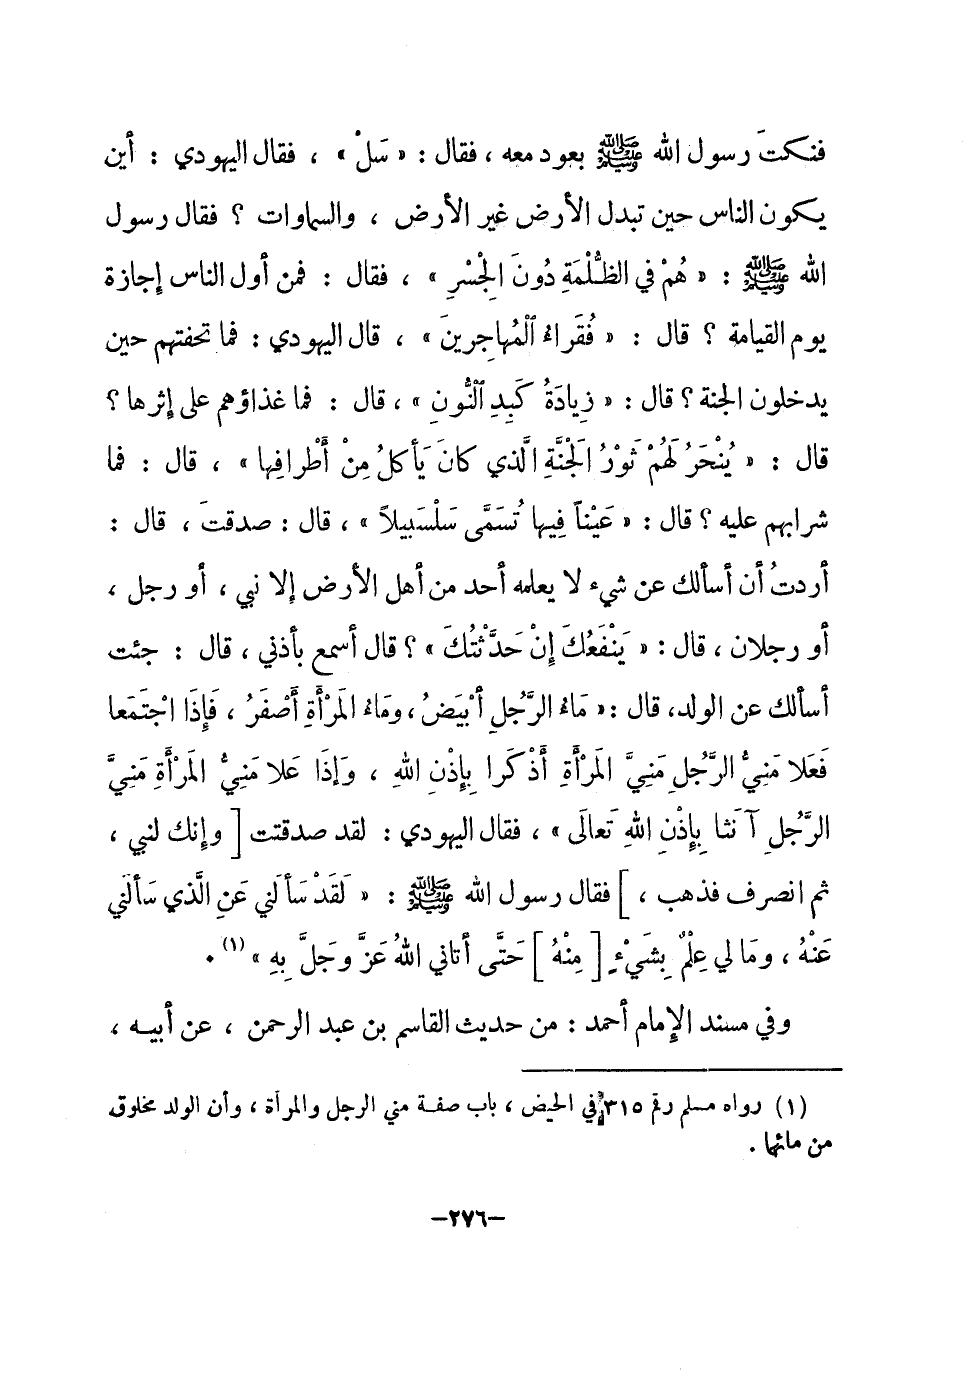 فنكتَ رسول الله ﷺ بعود معه ، فقال : « سَلْ » ، فقال اليهودي : أين
يكون الناس حين تبدل الأرض غير الأرض ، والسماوات ؟ فقال رسول
الله ﷺ : « هُمْ في الظُّلْمَةِ دُونَ الجْسْرِ » ، فقال : فمن أول الناس إجازة
يوم القيامة ؟ قال : « فُقَراءُ ٱلمُهاجِرينَ » ، قال اليهودي : فما تحفتهم حين
يدخلون الجنة ؟ قال : « زِيادَةُ كَبِدِ ٱلنُّونِ » ، قال : فما غذاؤهم على إثرها ؟
قال : « يُنْحَرُ لَهُمْ ثَوْرُ الجَنَّةِ الَّذي كانَ يَأكلُ مِنْ أَطْرافِها » ، قال : فما
شرابهم عليه ؟ قال : « عَيْناً فِيها تُسَمَّى سَلْسَبِيلاً » ، قال : صدقتَ ، قال :
أردتُ أن أسألك عن شيء لا يعلمه أحد من أهل الأرض إلا نبي ، أو رجل ،
أو رجلان ، قال : « يَنْفَعُكَ إنْ حَدَّثْتُكَ » ؟ قال أسمع بأذني ، قال : جئت
أسألك عن الولد، قال :« مَاءُ الرَّجُلِ أبْيَضُ ، ومَاءُ المَرْأَةِ أَصْفَرُ ، فَإِذَا اجْتَمَعا
فَعَلا مَنِيُّ الرَّجُلِ مَنِيَّ المَرْأَةِ أَذْكَرا بِإِذْنِ اللهِ ، وَإذَا عَلا مَنِيُّ المَرْأَةِ مَنِيَّ
الرَّجُلِ آنَثا بِإِذْنِ اللهِ تَعالَى » ، فقال اليهودي : لقد صدقتت [ وإنك لنبي ،
ثم انصرف فذهب ، ] فقال رسول الله ﷺ : « لَقَدْ سَألَني عَنِ الَّذي سَألَني
عَنْهُ ، ومَا لي عِلْمٌ بِشَيْءٍ [ مِنْهُ ] حَتَّى أتاني اللهُ عَزَّ وجَلَّ بِهِ » (١) .
وفي مسند الإمام أحمد : من حديث القاسم بن عبد الرحمن ، عن أبيه ،
(١) رواه مسلم رقم ٣١٥ في الحيض ، باب صفة مني الرجل والمرأة ، وأن الولد مخلوق
من مائها .
–٢٧٦–